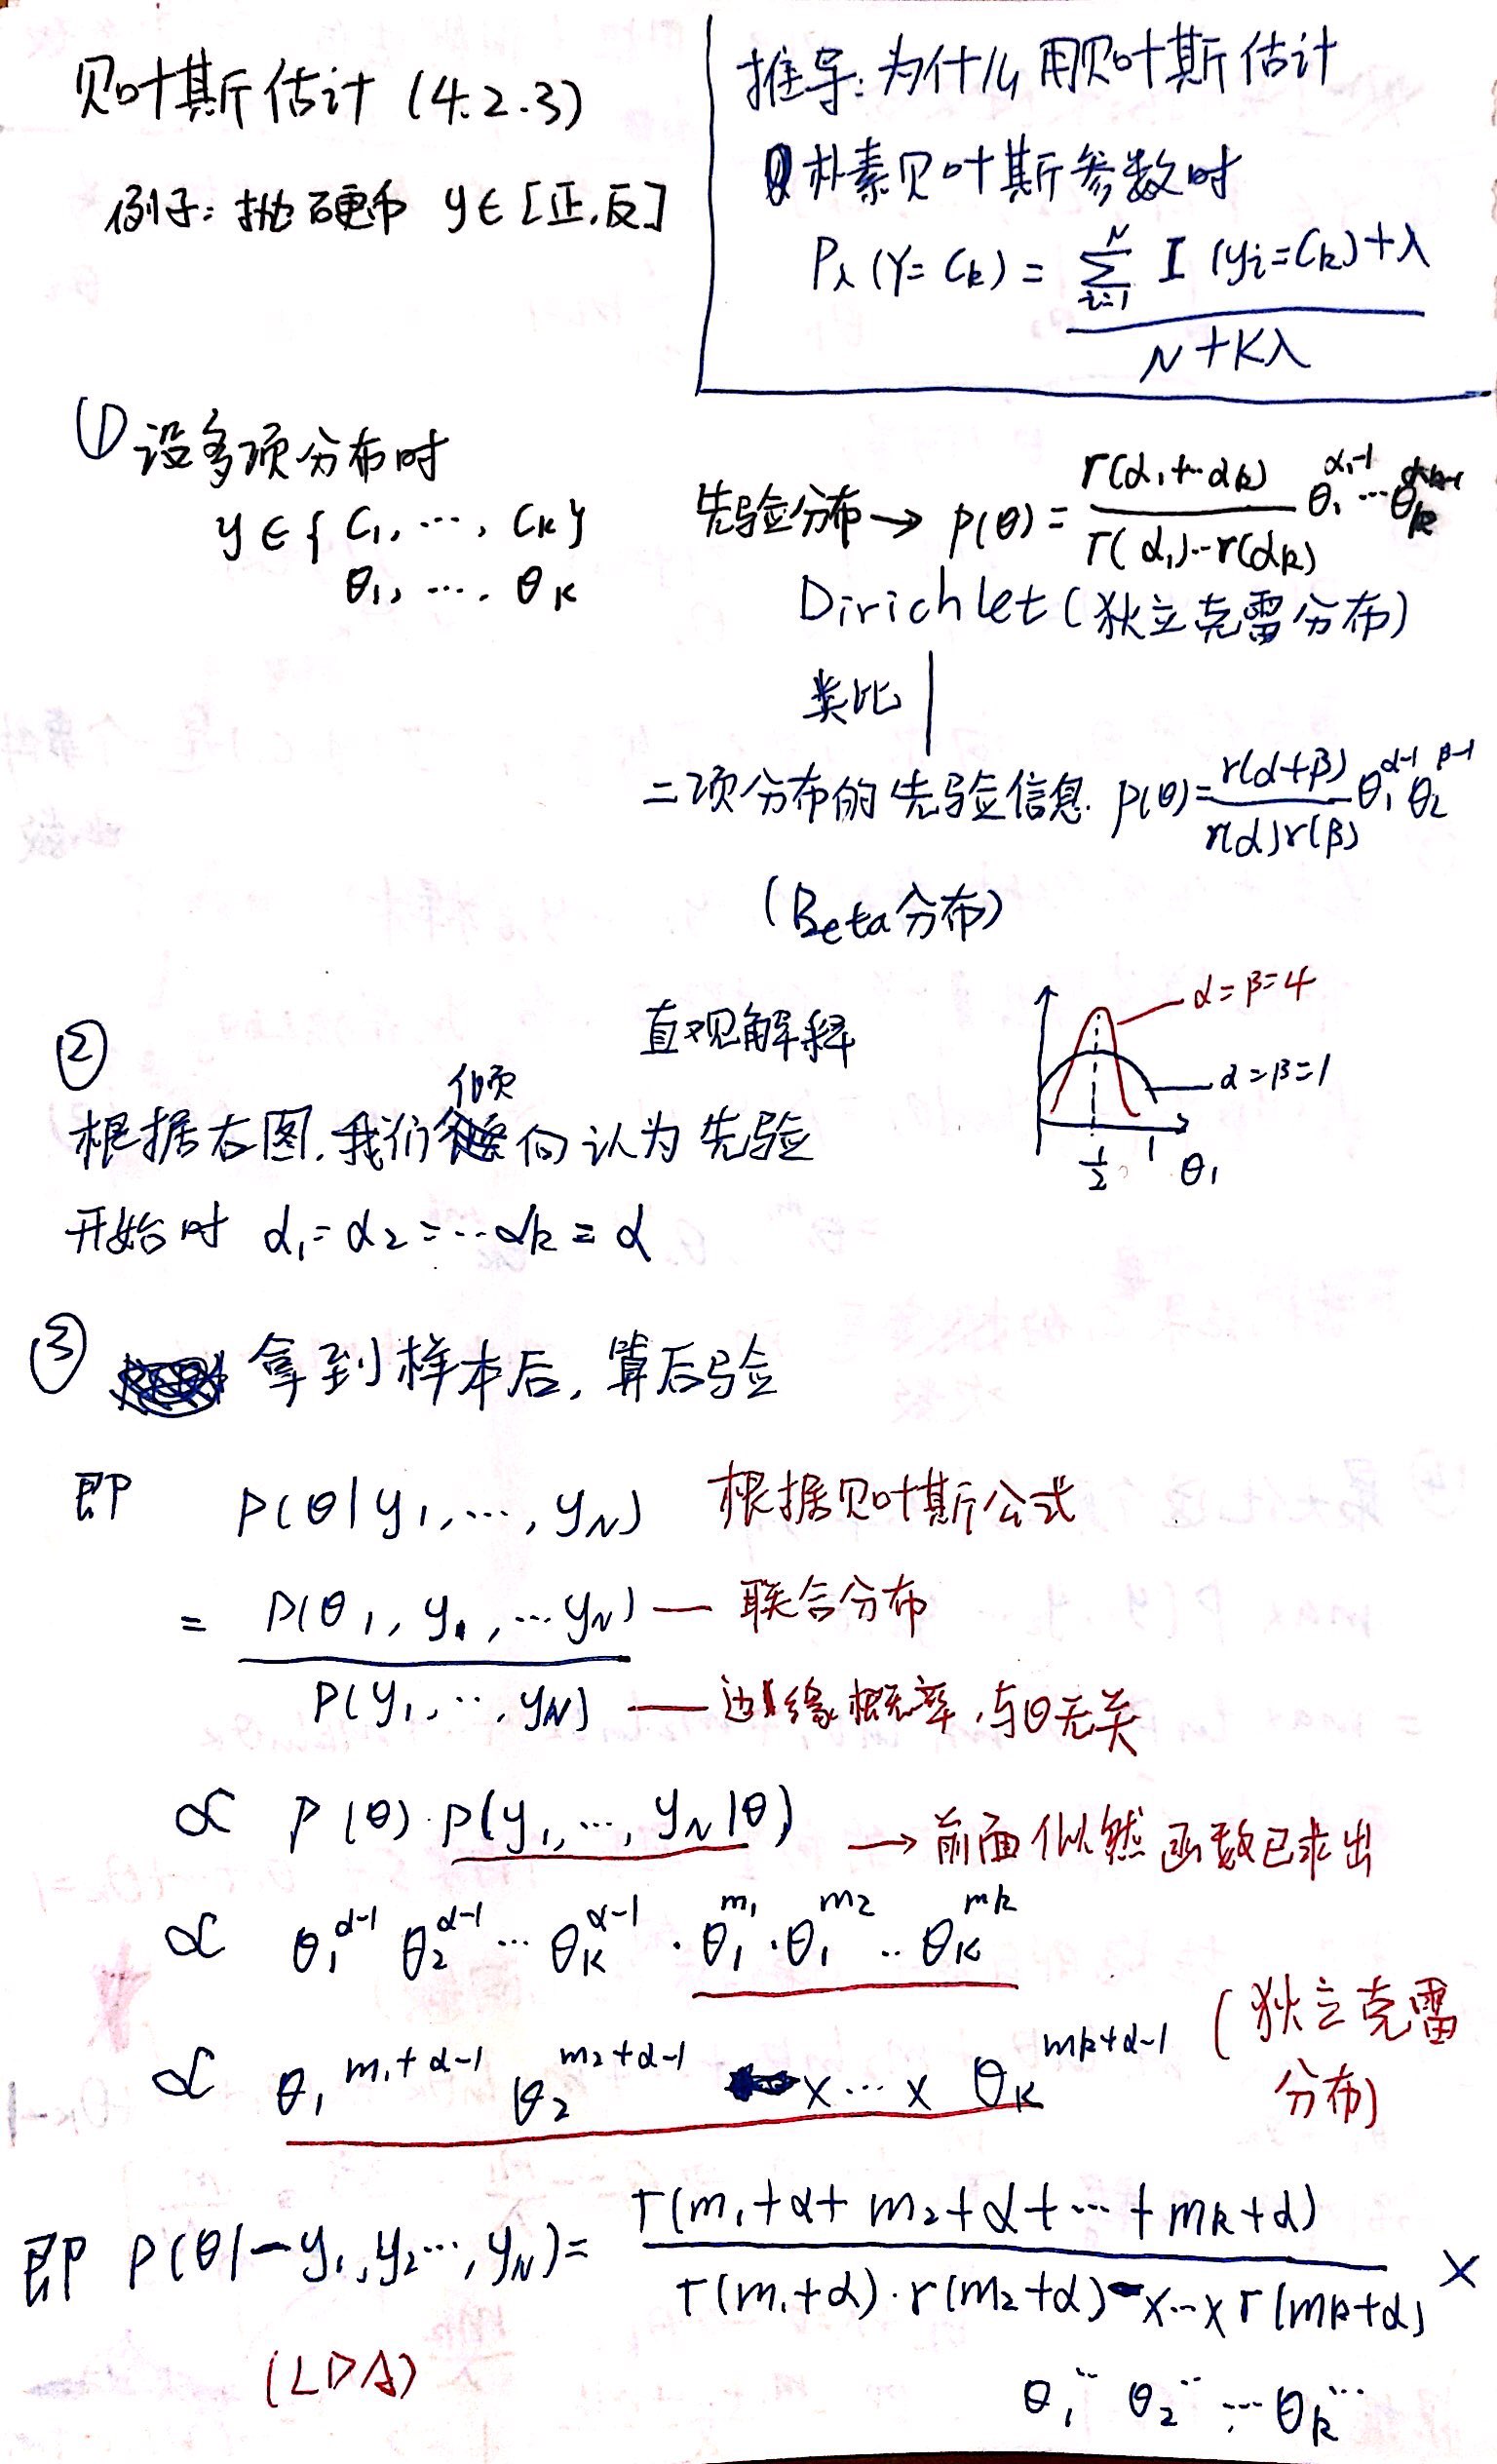 贝叶斯估计 (4.2.3)
例子: 抛硬币 y∈[正,反]
推导: 为什么用贝叶斯估计
朴素贝叶斯参数时
Pλ(Y=Ck) = (∑_{i=1}^{N} I(yi=Ck)+λ) / (N+Kλ)
① 设多项分布时
y∈{C1, ⋯, CK}
θ1, ⋯, θK
先验分布 → p(θ) = Γ(α1+⋯αk) / Γ(α1)⋯Γ(αk) θ1^{α1-1} ⋯ θk^{αk-1}
Dirichlet (狄立克雷分布)
类比
二项分布的先验信息. p(θ) = r(α+β) / r(α)r(β) θ1^{α-1} θ2^{β-1}
(Beta分布)
直观解释
α=β=4
α=β=1
1/2 1 θ1
②
根据右图, 我们倾向认为先验
开始时 α1=α2=⋯αk=α
③ 拿到样本后, 算后验
即 P(θ|y1, ⋯, yN) 根据贝叶斯公式
= P(θ1, y1, ⋯yN) — 联合分布
P(y1, ⋯, yN) — 边缘概率, 与θ无关
∝ P(θ)·P(y1, ⋯, yN|θ) → 前面似然函数已求出
∝ θ1^{α-1} θ2^{α-1} ⋯ θK^{α-1} · θ1^{m1} · θ1^{m2} ‥ θK^{mk}
∝ θ1^{m1+α-1} θ2^{m2+α-1} ×⋯× θK^{mk+α-1} (狄立克雷
分布)
即 P(θ|−y1, y2⋯, yN) = Γ(m1+α+m2+α+⋯+mk+α) / Γ(m1+α)·r(m2+α)×⋯×Γ(mk+α) ×
(LDA)
θ1^{⋯} θ2^{⋯} ⋯ θk^{⋯}